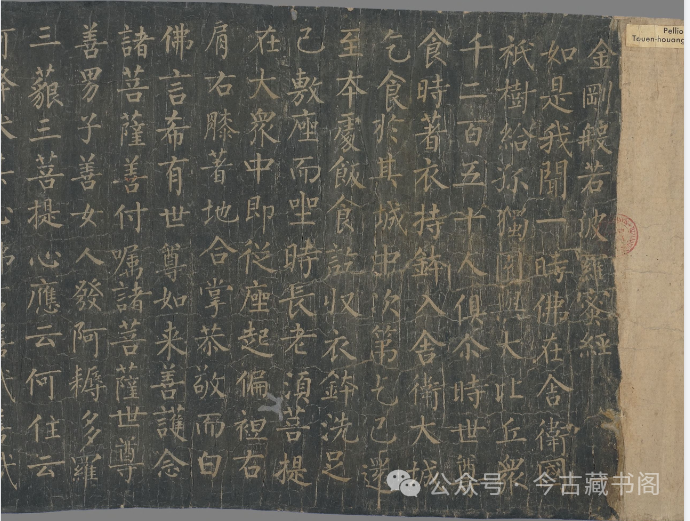 金剛般若波羅蜜經
如是我聞一時佛在舍衛國
祇樹給孤獨園與大比丘衆
千二百五十人俱尒時世尊
食時著衣持鉢入舍衛大城
乞食於其城中次第乞已還
至本處飯食訖収衣鉢洗足
已敷座而坐時長老湏菩提
在大衆中即從座起偏袒右
肩右膝著地合掌恭敬而白
佛言希有世尊如来善護念
諸菩薩善付囑諸菩薩世尊
善男子善女人發阿耨多羅
三藐三菩提心應云何住云
Pellio
Touen-houang
公众号 · 今古藏书阁